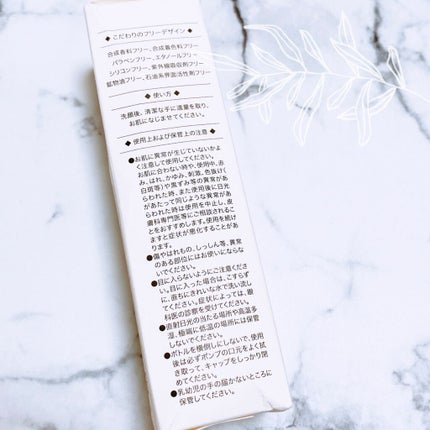 ◆ こだわりのフリーデザイン ◆
合成香料フリー、合成着色料フリー
パラベンフリー、エタノールフリー
シリコンフリー、紫外線吸収剤フリー
鉱物油フリー、石油系界面活性剤フリー
◆ 使い方 ◆
洗顔後、清潔な手に適量を取り、
お肌になじませてください。
◆ 使用上および保管上の注意 ◆
●お肌に異常が生じていないかよ
く注意して使用してください。
お肌に合わない時や、使用中、赤
み、はれ、かゆみ、刺激、色抜け(
白斑等)や黒ずみ等の異常があ
らわれた時、また使用後に日光
があたって同じような異常があ
らわれた時は使用を中止し、皮
膚科専門医等にご相談されるこ
とをおすすめします。使用を続け
ますと症状が悪化することがあ
ります。
●傷やはれもの、しっしん等、異常
のある部位にはお使いにならな
いでください。
●目に入らないようにご注意くださ
い。目に入った場合は、こすらず
に、直ちにきれいな水で洗い流し
てください。症状によっては、眼
科医の診察を受けてください。
●直射日光の当たる場所や高温多
湿、極端に低温の場所には保管
しないでください。
●ボトルを横倒しにしないで、使用
後は必ずポンプの口元をよく拭
き取って、キャップをしっかり閉
めてください。
●乳幼児の手の届かないところに
保管してください。